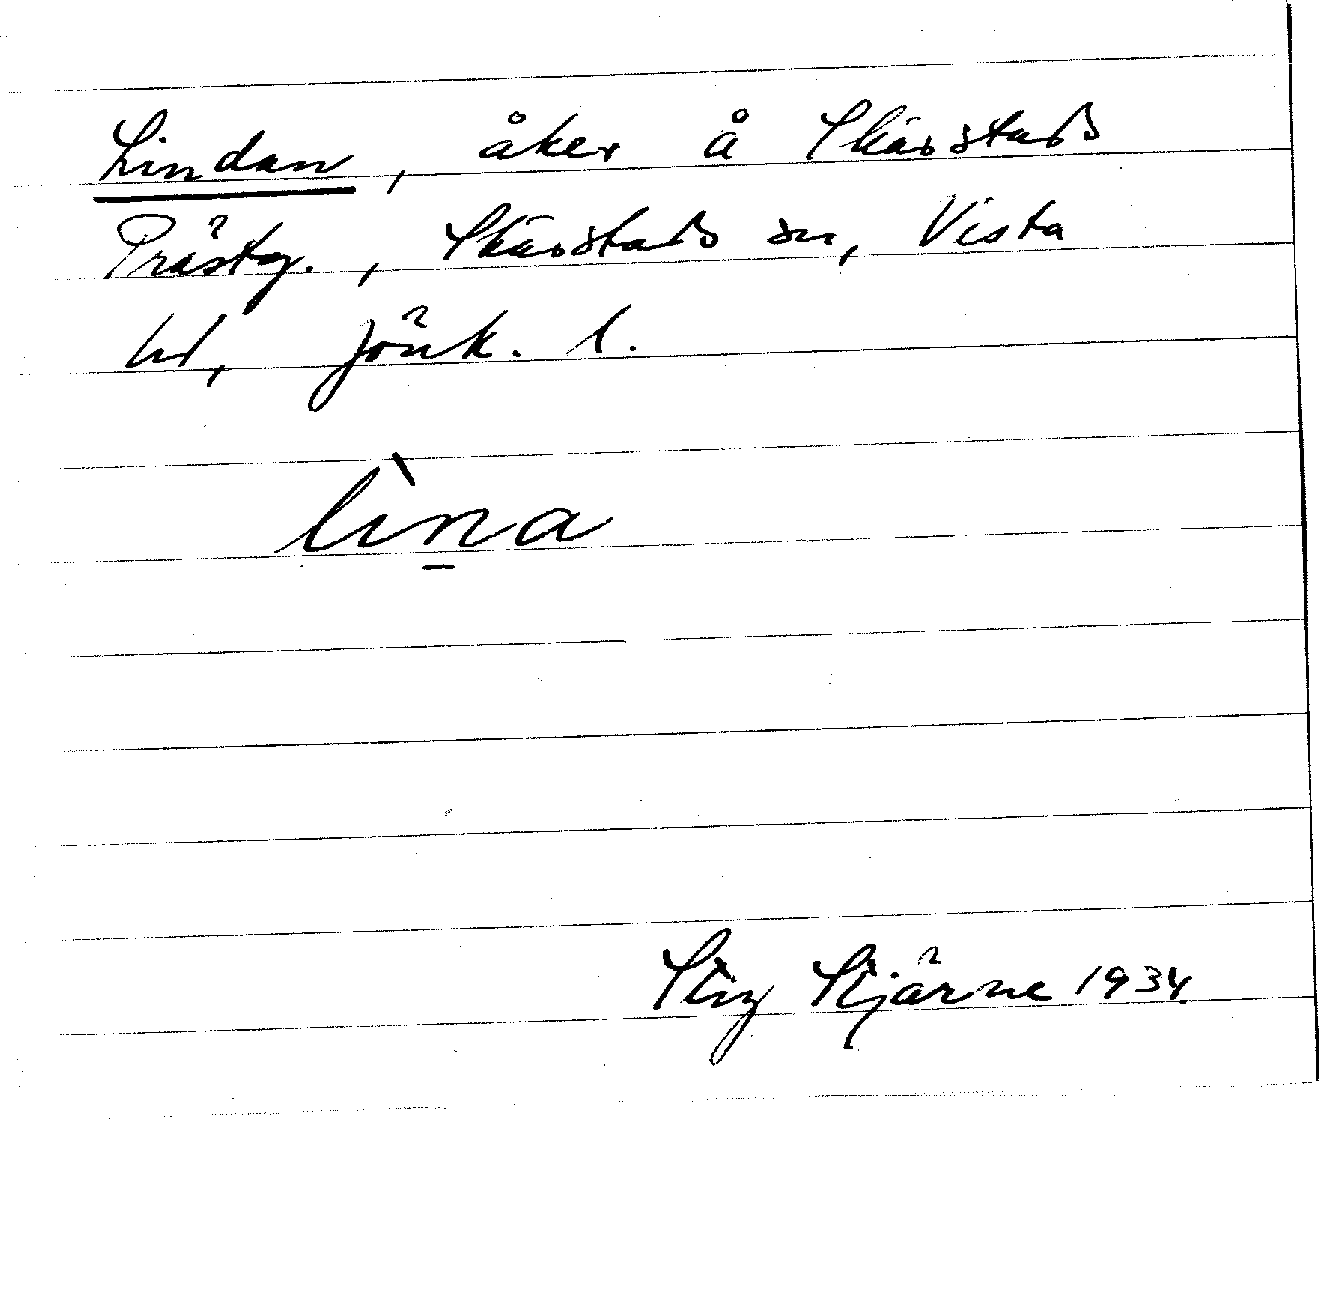 Lindan, åker å Skärstads
Prästg., Skärstads sn, Vista
hd, Jönk. l.
lìn̲a
Stig Stjärne 1934.